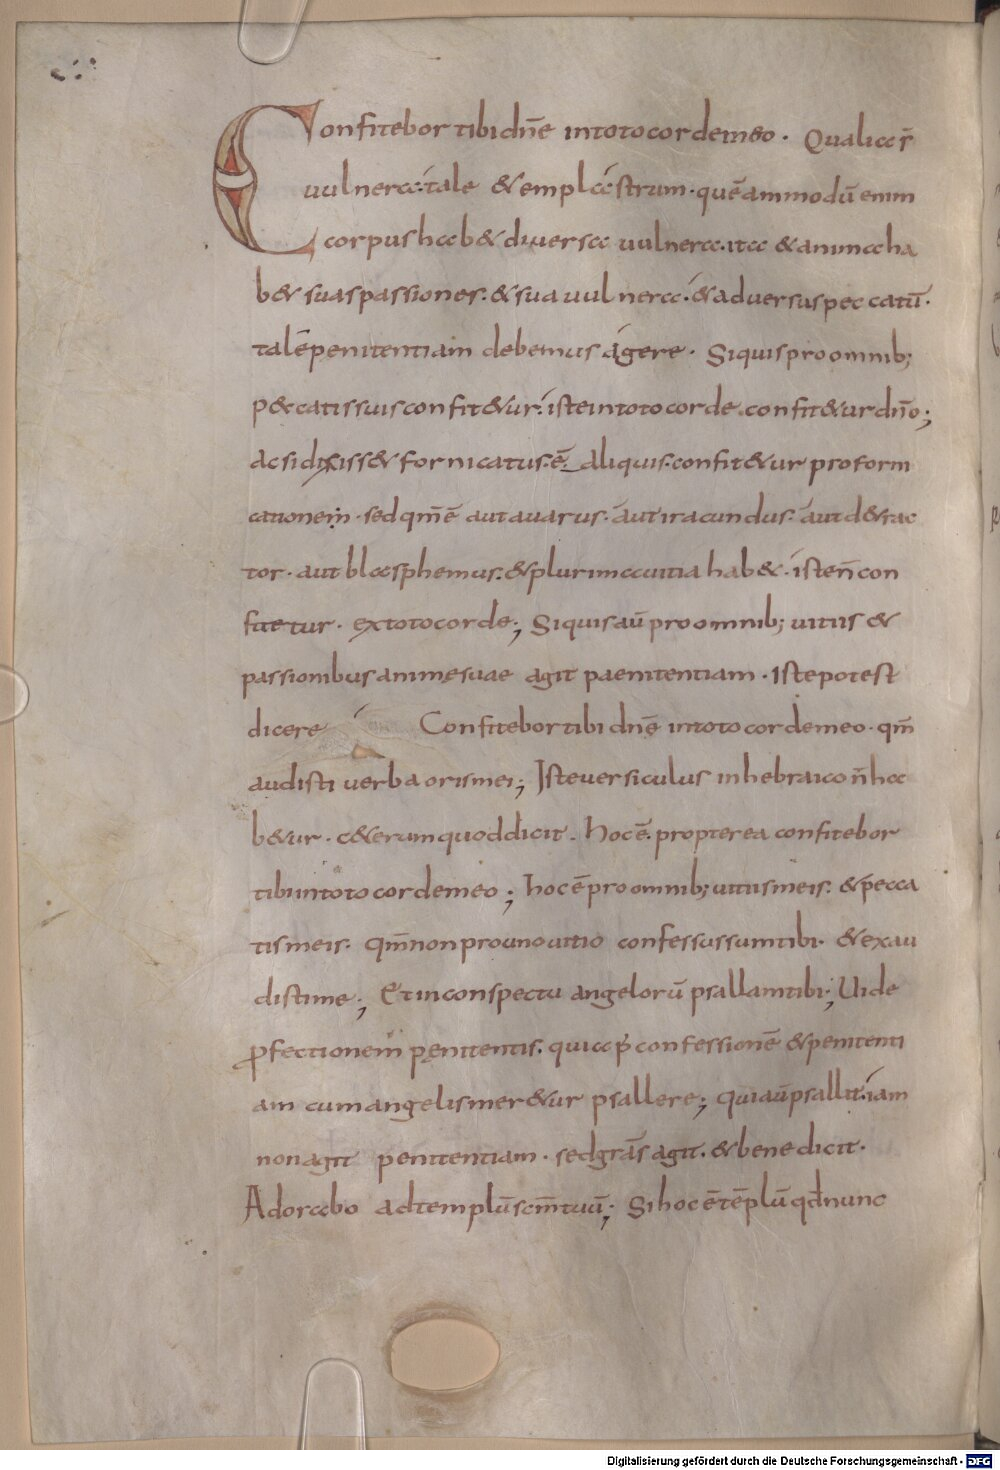 Confitebor tibi dñe in toto corde meo · Qualia s̄
uulnera· tale & emplastrum · quēammodū enim
corpus hab& diuersa uulnera · ita & anima ha
b& suas passiones · & sua uulnera · & aduersus peccatū ·
talē penitentiam debemus agere · Siquis pro omnib;
peccatis suis confit&ur · iste in toto corde confit&ur dño;
ac si dixiss& fornicatus · ē · aliquis · confit&ur pro forni
cationem · sed qm̄ ē aut auarus · aut iracundus · aut d&rac
tor · aut blasphemus · & plurima uitia hab& · iste n̄ con
fitetur · ex toto corde; Siquis aū pro omnib; uitiis &
passionibus animę suae agit paenitentiam · Iste potest
dicere Confitebor tibi dñe in toto corde meo · qm̄
audisti uerba oris mei; Iste uersiculus in hebraico n̄ ha
b&ur · c&erum quod dicit · hoc ē · propterea confitebor
tibi in toto corde meo; hoc ē pro omnib; uitiis meis · & pecca
tis meis · qm̄ non pro uno uitio confessus sum tibi · & exau
disti me; Et in conspectu angelorū psallam tibi; Uide
ꝓfectionem pęnitentis · qui ap̄ confessionē & penitenti
am cum angelis mer&ur psallere; qui aū psallit · iam
non agit penitentiam · sed gr̄as agit · & benedicit ·
Adorabo ad templū scm̄ tuū; Si hoc ē tēplū qd̄ nunc
Digitalisierung gefördert durch die Deutsche Forschungsgemeinschaft - DFG